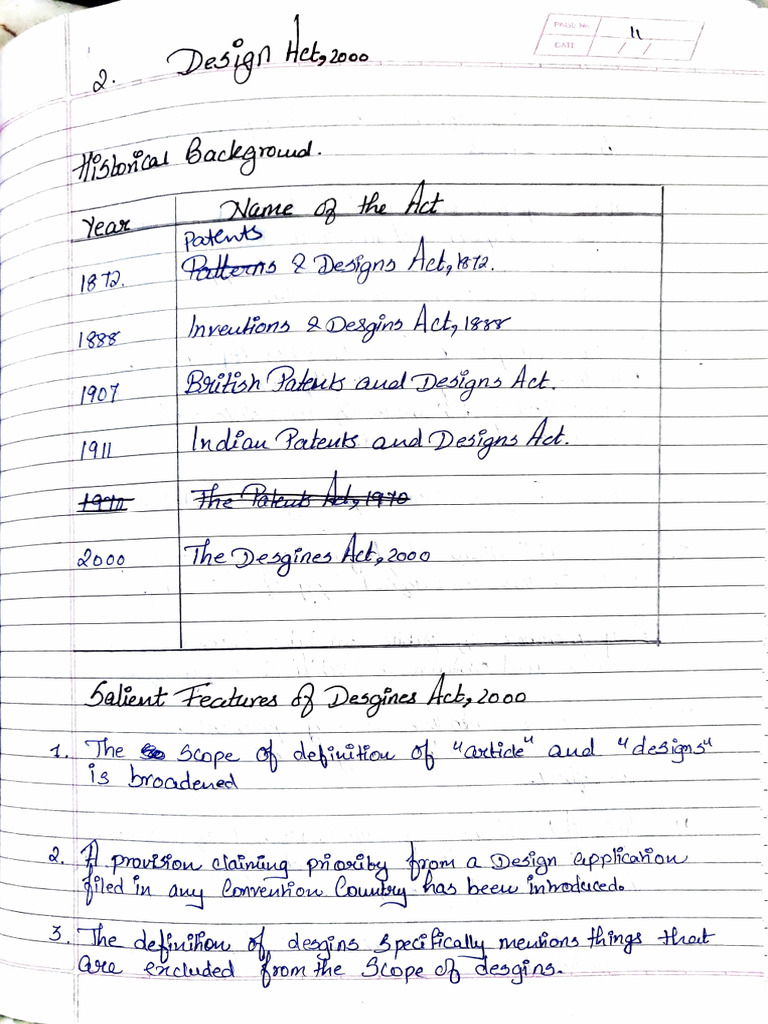 PAGE No. 11
DATE / /
2. Design Act, 2000
Historical Background.
Year Name of the Act
Patents
1872. Patterns & Designs Act, 1872.
1888 Inventions & Desgins Act, 1888
1907 British Patents and Designs Act.
1911 Indian Patents and Designs Act.
1970 The Patents Act, 1970
2000 The Desgines Act, 2000
Salient Features of Desgines Act, 2000
1. The Scope of definition of "article" and "designs"
is broadened
2. A provision claiming priority from a Design application
filed in any Convention Country has been introduced.
3. The definition of desgins specifically mentions things that
are excluded from the Scope of desgins.